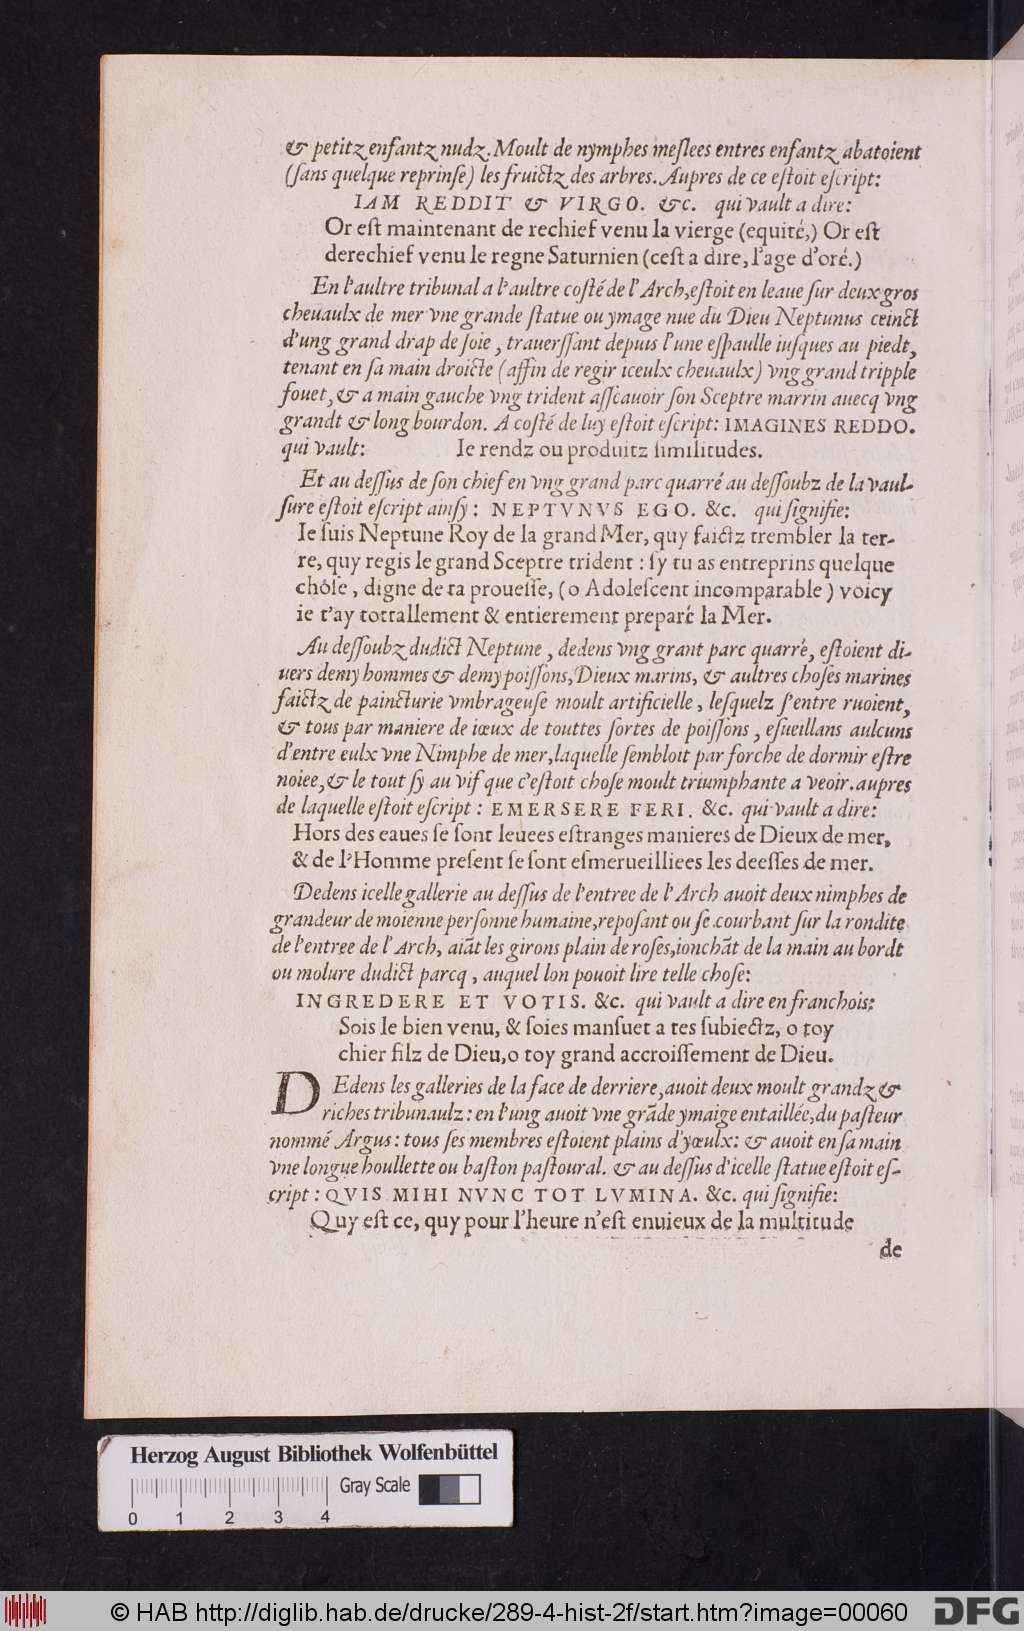 & petitz enfantz nudz. Moult de nymphes meſlees entres enfantz abatoient
(ſans quelque reprinſe) les fruictz des arbres. Aupres de ce eſtoit eſcript:
IAM REDDIT & VIRGO. &c. qui vault a dire:
Or eſt maintenant de rechief venu la vierge (equité,) Or eſt
derechief venu le regne Saturnien (ceſt a dire, l'age d'oré.)
En l'aultre tribunal a l'aultre coſté de l'Arch, eſtoit en leaue ſur deux gros
cheuaulx de mer vne grande ſtatue ou ymage nue du Dieu Neptunus ceinct
d'ung grand drap de ſoie, trauerſſant depuis l'une eſpaulle iuſques au piedt,
tenant en ſa main droicte (affin de regir iceulx cheuaulx) vng grand tripple
fouet, & a main gauche vng trident aſſcauoir ſon Sceptre marrin auecq vng
grandt & long bourdon. A coſté de luy eſtoit eſcript: IMAGINES REDDO.
qui vault: Ie rendz ou produitz ſimilitudes.
Et au deſſus de ſon chief en vng grand parc quarré au deſſoubz de la vaul-
ſure eſtoit eſcript ainſy: NEPTVNVS EGO. &c. qui ſignifie:
Ie ſuis Neptune Roy de la grand Mer, quy faictz trembler la ter-
re, quy regis le grand Sceptre trident: ſy tu as entreprins quelque
choſe, digne de ta proueſſe, (o Adoleſcent incomparable) voicy
ie t'ay tottallement & entierement preparé la Mer.
Au deſſoubz dudict Neptune, dedens vng grant parc quarré, eſtoient di-
uers demy hommes & demy poiſſons, Dieux marins, & aultres choſes marines
faictz de paincturie vmbrageuſe moult artificielle, leſquelz ſ'entre ruoient,
& tous par maniere de iœux de touttes ſortes de poiſſons, eſueillans aulcuns
d'entre eulx vne Nimphe de mer, laquelle ſembloit par forche de dormir eſtre
noiee, & le tout ſy au vif que c'eſtoit choſe moult triumphante a veoir. aupres
de laquelle eſtoit eſcript: EMERSERE FERI. &c. qui vault a dire:
Hors des eaues ſe ſont leuees eſtranges manieres de Dieux de mer,
& de l'Homme preſent ſe ſont eſmerueilliees les deeſſes de mer.
Dedens icelle gallerie au deſſus de l'entree de l'Arch auoit deux nimphes de
grandeur de moienne perſonne humaine, repoſant ou ſe courbant ſur la rondite
de l'entree de l'Arch, aiāt les girons plain de roſes, ionchāt de la main au bordt
ou molure dudict parcq, auquel lon pouoit lire telle choſe:
INGREDERE ET VOTIS. &c. qui vault a dire en franchois:
Sois le bien venu, & ſoies manſuet a tes ſubiectz, o toy
chier filz de Dieu, o toy grand accroiſſement de Dieu.
DEdens les galleries de la face de derriere, auoit deux moult grandz &
riches tribunaulz: en l'ung auoit vne grāde ymaige entaillée, du paſteur
nommé Argus: tous ſes membres eſtoient plains d'yœulx: & auoit en ſa main
vne longue houllette ou baſton paſtoural. & au deſſus d'icelle ſtatue eſtoit eſ-
cript: QVIS MIHI NVNC TOT LVMINA. &c. qui ſignifie:
Quy eſt ce, quy pour l'heure n'eſt enuieux de la multitude
de
Herzog August Bibliothek Wolfenbüttel
Gray Scale
0 1 2 3 4
© HAB http://diglib.hab.de/drucke/289-4-hist-2f/start.htm?image=00060
DFG